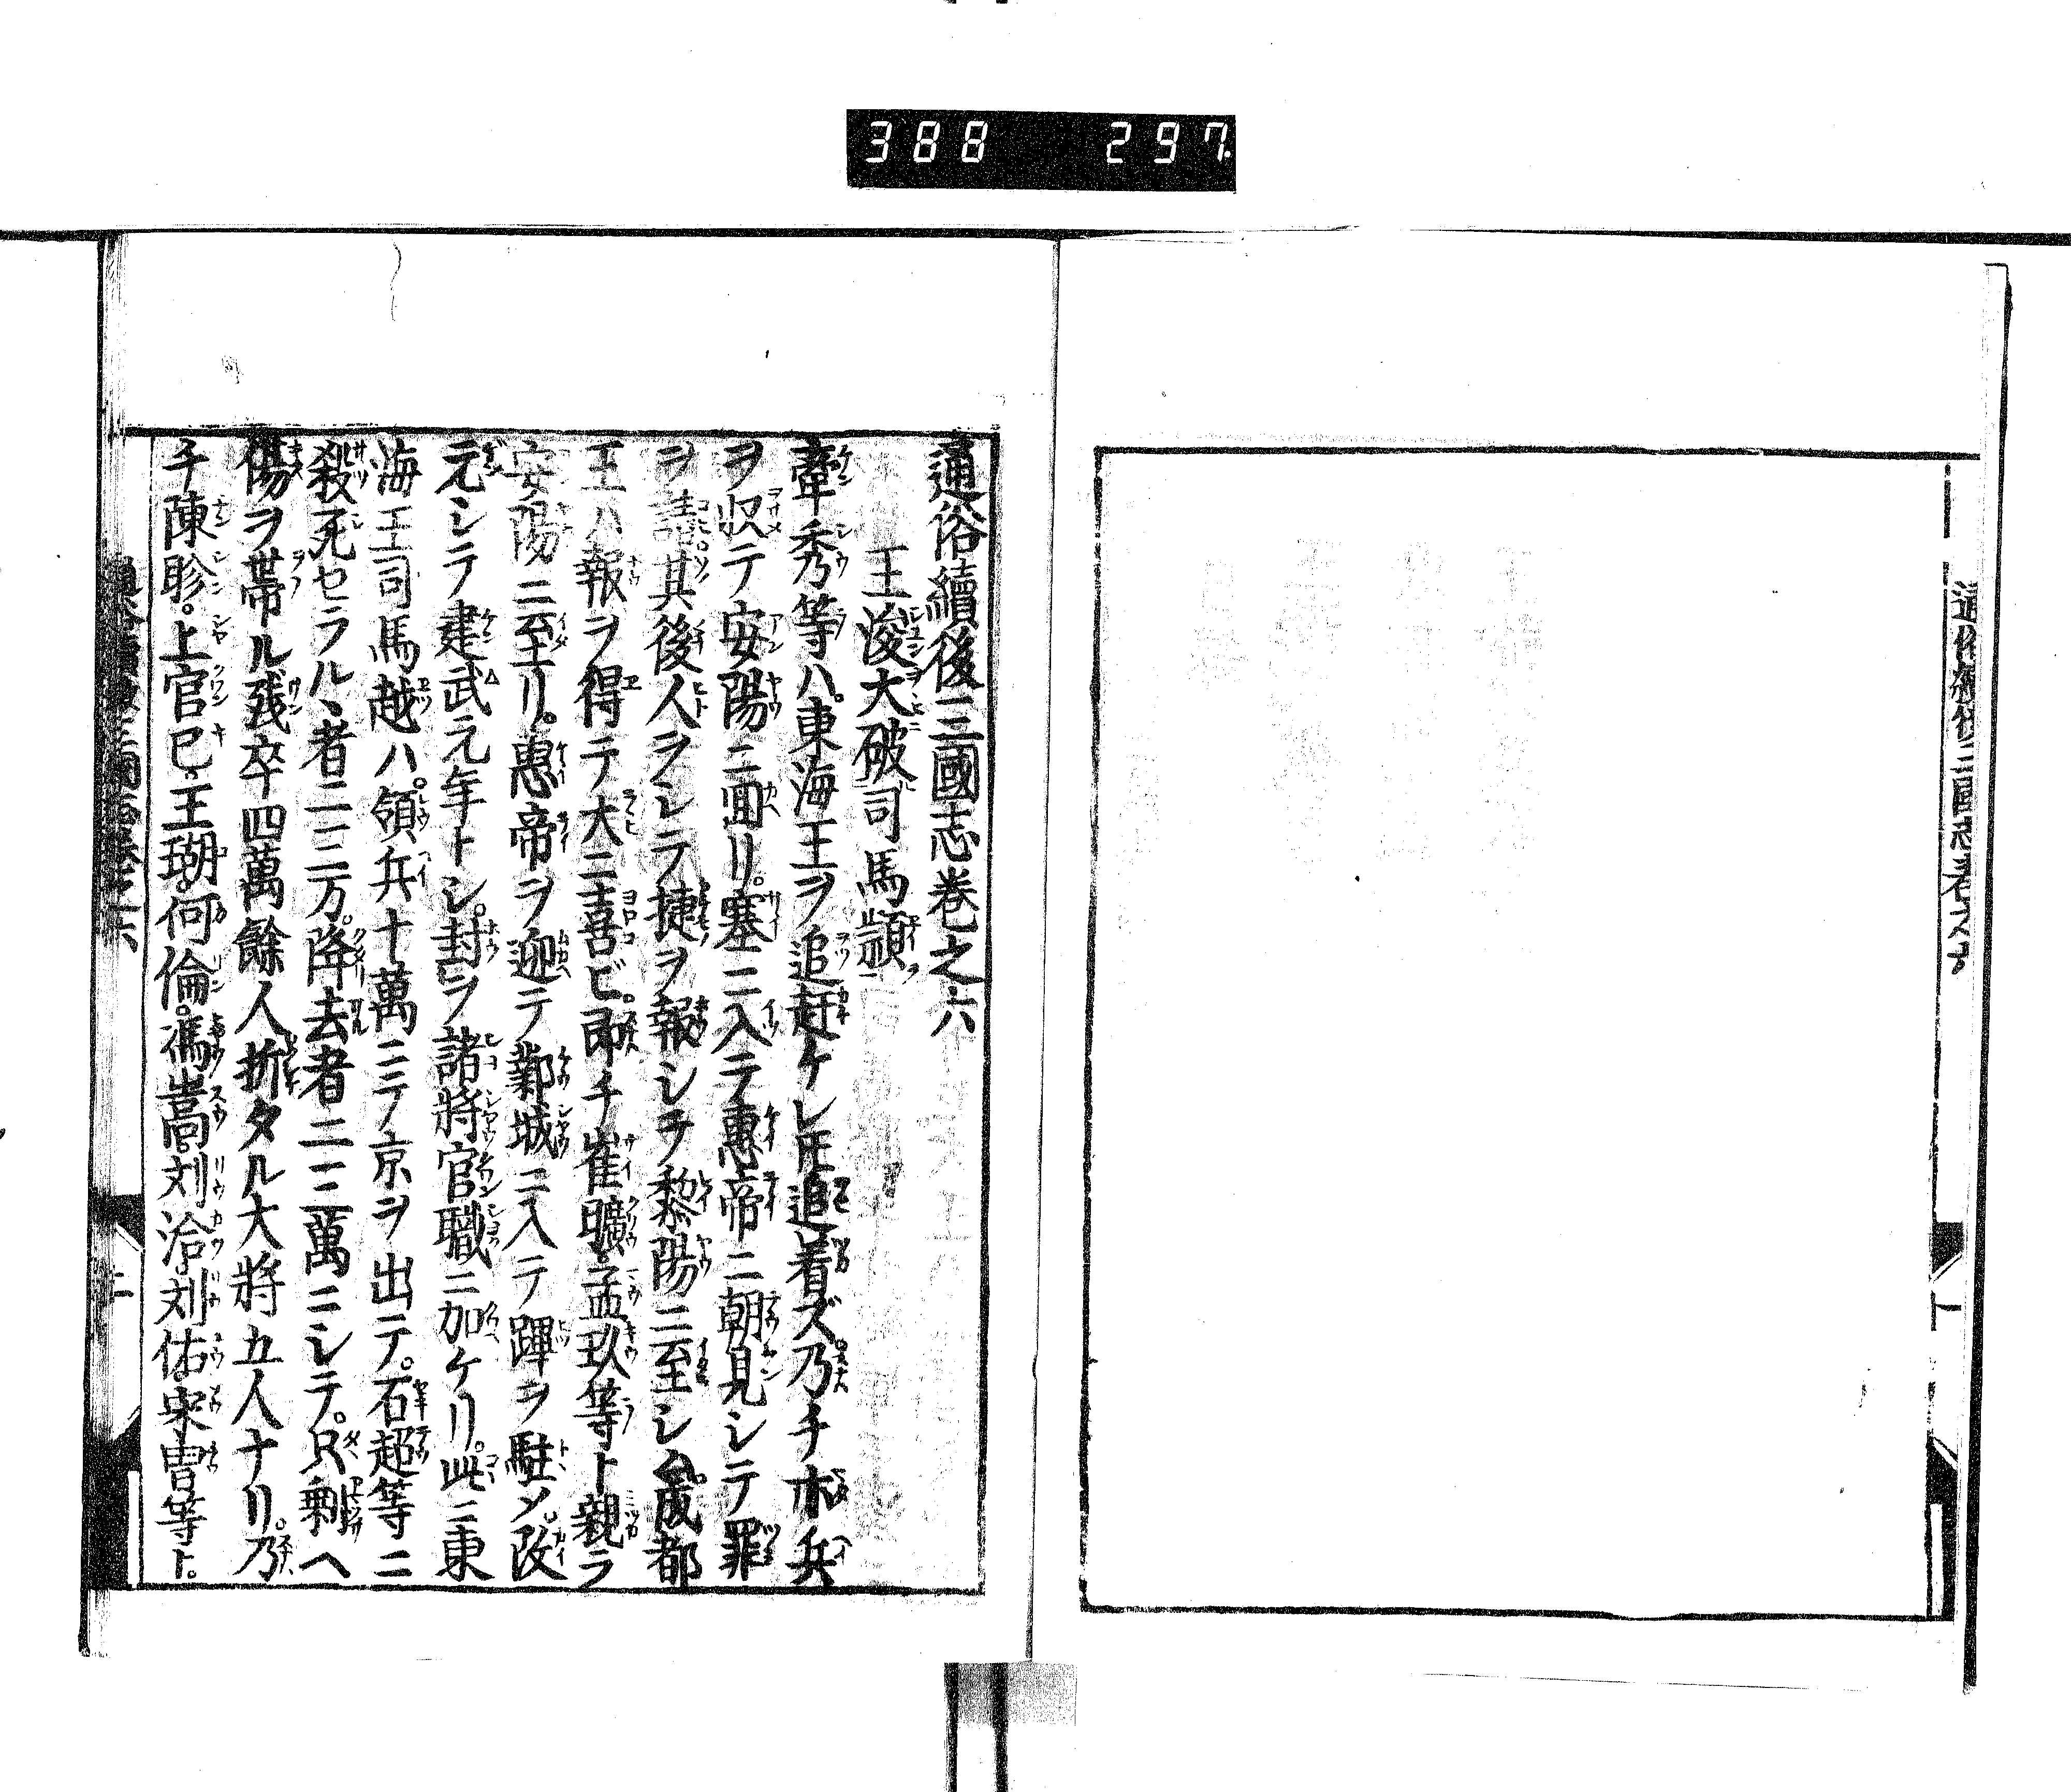 388 297
通俗續後三國志巻之六
王浚大破司馬頴
牽秀等ハ。東海王ヲ追赶ケレ𪜈追着ズ。乃チ本兵
ヲ収テ安陽ニ囬リ。塞ニ入テ惠帝ニ朝見シテ罪
ヲ請。其後人ヲシテ捷ヲ報シテ黎陽ニ至シム。成都
王ハ報ヲ得テ大ニ喜ビ。即チ崔曠。孟玖等ト親ラ
安陽ニ至リ。惠帝ヲ迎テ鄴城ニ入テ蹕ヲ駐ム。改
元シテ建武元年トシ。封ヲ諸將官職ニ加ケリ。此ニ東
海王司馬越ハ。領兵十萬ニテ京ヲ出テ。石超等ニ
殺死セラルヽ者二三万。降去者二三萬ニシテ。只剰ヘ
傷ヲ帯ル残卒四萬餘人折タル大將五人ナリ。乃
チ陳眕。上官巳。王瑚。何倫。馮嵩。刘洽。刘佑。宋胄等ト。
二